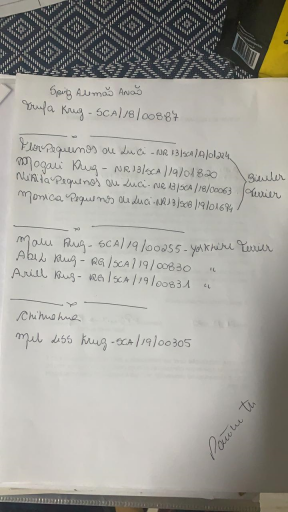 Spitz Alemão Anão
Trufa Krug - SCA/18/00887
Pequenos ou Luci - NR13/SCA/19/01284
Magali Krug - NR13/SCA/19/01820
Nikita Pequenos ou Luci - NR13/SCA/18/00063
Monica Pequenos ou Luci NR13/SCB/19/01694
Terrier
Malu Krug - SCA/19/00255 - Yorkshire Terrier
Abil Krug - RG/SCA/19/00830 "
Ariel Krug - RG/SCA/19/00831 "
Chihuahua
Mel Liss Krug - SCA/19/00305